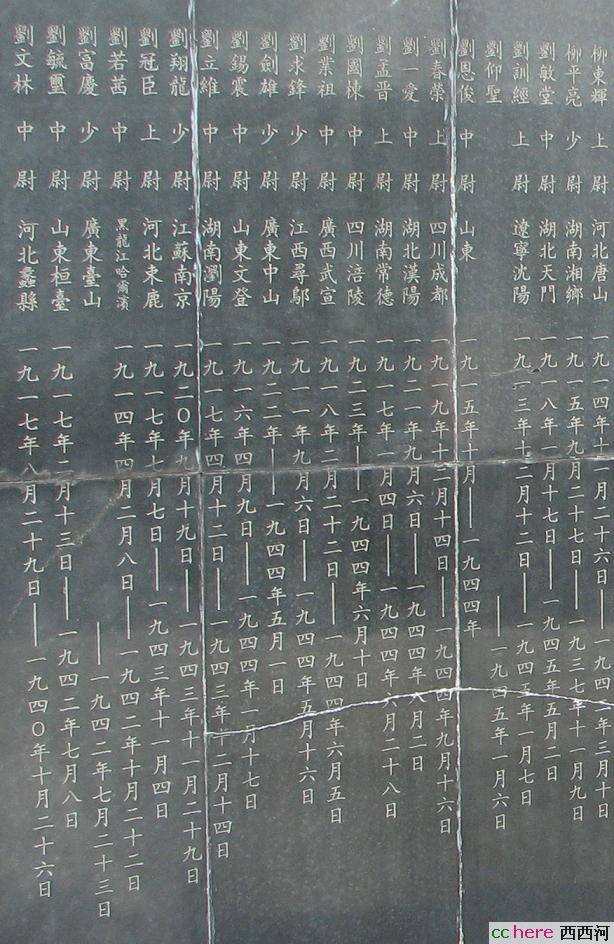 柳東輝 上尉 河北唐山 一九一四年十一月二十六日——一九四 年三月十日
柳平亮 少尉 湖南湘鄉 一九一五年九月二十七日——一九三七年十一月九日
劉敏堂 中尉 湖北天門 一九一八年一月十七日——一九四五年五月二日
劉訓經 上尉 遼寧沈陽 一九一三年十二月十二日——一九四五年一月七日
劉仰聖 ——一九四五年一月六日
劉恩俊 中尉 山東 一九一五年十月——一九四四年
劉春榮 上尉 四川成都 一九一九年十二月十四日——一九四四年九月十六日
劉一愛 中尉 湖北漢陽 一九二一年九月六日——一九四四年八月二日
劉孟晋 上尉 湖南常德 一九一七年一月四日——一九四四年六月二十八日
劉國棟 中尉 四川涪陵 一九二三年——一九四四年六月十日
劉業祖 中尉 廣西武宣 一九一八年二月二十二日——一九四四年六月五日
劉求鋒 少尉 江西尋鄔 一九一一年九月六日——一九四四年五月十六日
劉劍雄 少尉 廣東中山 一九二二年——一九四四年五月一日
劉錫震 中尉 山東文登 一九一六年四月九日——一九四四年一月十七日
劉立維 中尉 湖南瀏陽 一九一七年四月十二日——一九四三年十二月十四日
劉翔龍 少尉 江蘇南京 一九二〇年九月十九日——一九四三年十一月二十九日
劉冠臣 上尉 河北束鹿 一九一七年七月七日——一九四三年十一月四日
劉若茜 中尉 黑龍江哈爾濱 一九一四年四月二月八日——一九四二年十月二十二日
劉富慶 少尉 廣東臺山 ——一九四二年七月二十三日
劉毓璽 中尉 山東桓臺 一九一七年二月十三日——一九四二年七月八日
劉文林 中尉 河北蠡縣 一九一七年八月二十九日——一九四〇年十月二十六日
cchere 西西河